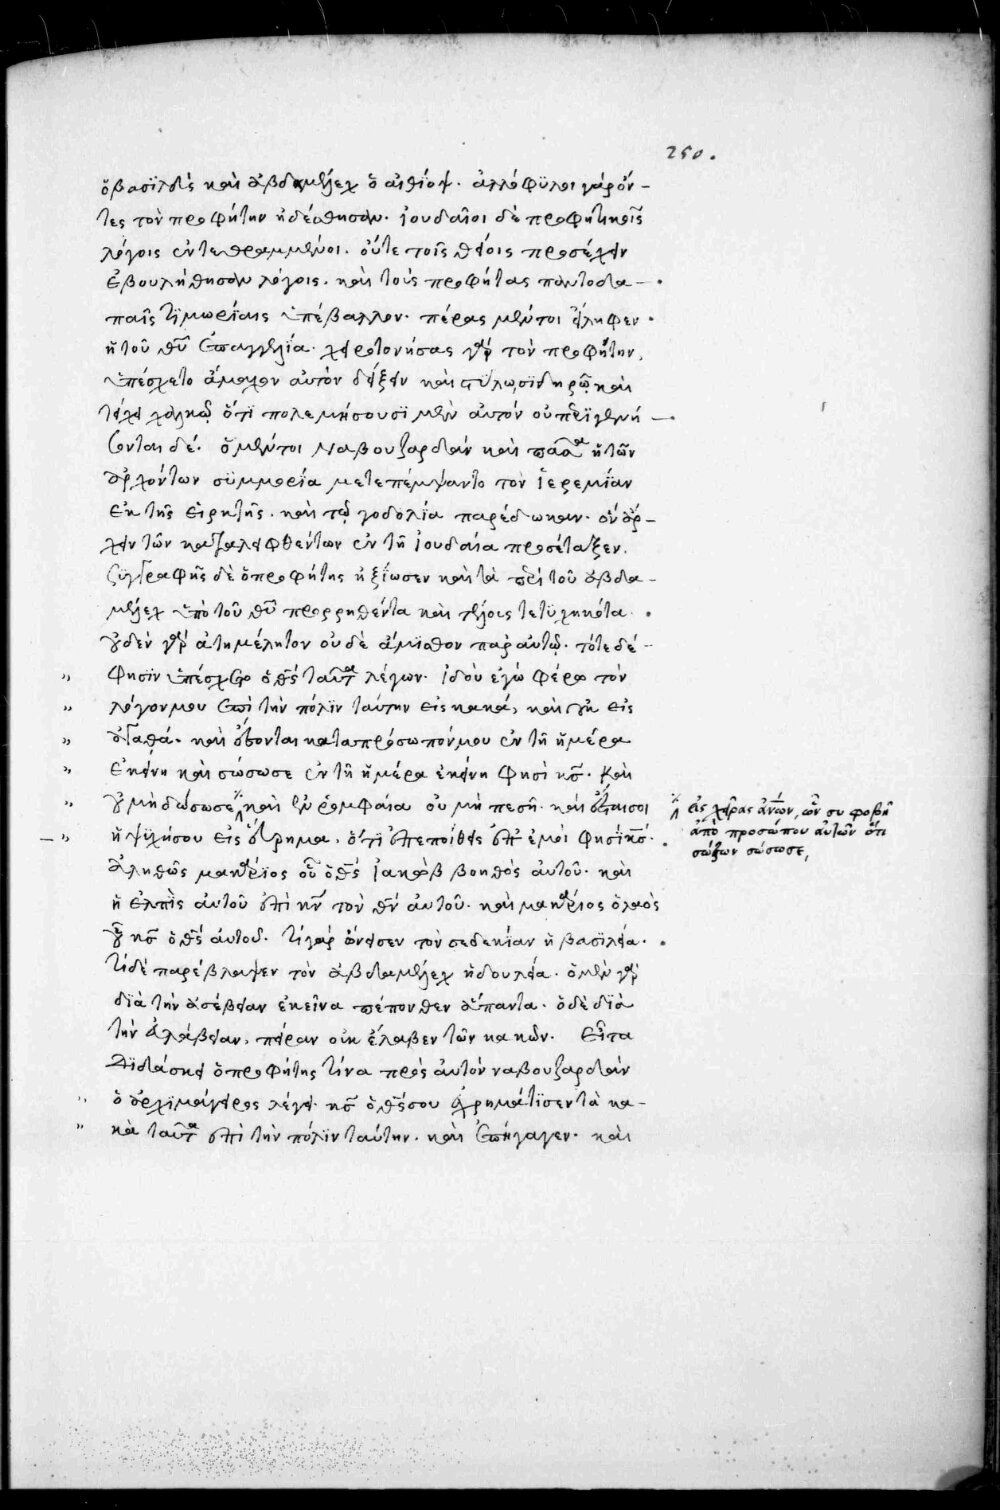 250.
ὁ βασϊλεὺς καὶ ἀβδεμέλεχ ὁ αἰθίοψ. ἀλλόφϋλοι γὰρ ὄν-
τες τὸν προφήτην ἠδέσθησαν. ἰουδαῖοι δὲ προφητικοῖς
λόγοις ἐντεθραμμένοι. οὔτε τοῖς θείοις προσέχειν
ἐβουλήθησαν λόγοις. καὶ τοὺς προφήτας παντοδα-
παῖς τϊμωρίαις ὑπέβαλλον. πέρας μέντοι εἴληφεν
ἡ τοῦ θῦ ἐπαγγελία. χειροτονήσας γὰρ τὸν προφήτην,
ὑπέσχετο ἄμαχον αὐτὸν δεῖξειν καὶ στύλω σϊδηρῶ καὶ
τείχει χαλκῶ ὅτϊ πολεμήσουσϊ μὲν αὐτὸν οὐ περιγενή-
σονται δέ. ὁ μέντοι ναβουζαρδὰν καὶ πᾶσα ἡ τῶν
ἀρχόντων σϋμμορία μετεπέμψαντο τὸν ἱερεμίαν
ἐκ τῆς εἱρκτῆς. καὶ τῶ γοδολία παρέδωκαν. ὃν ἄρ-
χειν τῶν καταλειφθέντων ἐν τῆ ἰουδαία προσέταξεν.
συγγραφῆς δὲ ὁ προφήτης ἠξίωσεν καὶ τὰ περὶ τοῦ ἀβδε-
μέλεχ ὑπὸ τοῦ θῦ προρρηθέντα καὶ τέλους τετϋχηκότα.
οὐδὲν γὰρ ἀτημέλητον οὐδὲ ἄμισθον παρ αὐτῶ. τότε δέ
φησϊν ὑπέσχετο ὁ θς ταῦτα λέγων. ἰδοὺ ἐγὼ φέρω τὸν
λόγον μου ἐπὶ τὴν πόλϊν ταύτην εἰς κακά, καὶ οὐκ εἰς
ἀγαθά. καὶ ἔσονται κατα πρόσωπόν μου ἐν τῆ ἡμέρα
ἐκείνη καὶ σώσω σε ἐν τῆ ἡμέρα ἐκείνη φησὶ κς. καὶ
οὐ μὴ δώσω σε καὶ ἐν ῥομφαία οὐ μὴ πέση. καὶ ἔσται σοι
εἰς χεῖρας ἀνων, ὧν συ φοβῆ
ἀπὸ προσώπου αὐτῶν ὅτι
σώζων σώσω σε,
ἡ ψϋχή σου εἰς εὕρημα. ὅτϊ ἐπεποίθεις ἐπ ἐμοὶ φησϊ κς.
ἀληθῶς μακάριος οὗ ὁ θς ἰακὼβ βοηθὸς αὐτοῦ. καὶ
ἡ ἐλπὶς αὐτοῦ ἐπὶ κν τὸν θν αὐτοῦ. καὶ μακάριος ὁ λαὸς
οὗ κς ὁ θς αὐτοῦ. τί γὰρ ὤνησεν τὸν σεδεκίαν ἡ βασιλεία.
τί δὲ παρέβλαψεν τὸν ἀβδεμέλεχ ἡ δουλεία. ὁ μὲν γὰρ
διὰ τὴν ἀσέβειαν ἐκεῖνα πέπονθεν ἅπαντα. ὁ δὲ δϊὰ
τὴν εὐλάβειαν, πεῖραν οὐκ ἔλαβεν τῶν κακῶν. Εἶτα
διδάσκει ὁ προφήτης τίνα πρὸς αὐτὸν ναβουζαρδὰν
ὁ ἀρχϊμάγειρος λέγει. κς ὁ θς σου ἐχρημάτϊσεν τὰ κα-
κὰ ταῦτα ἐπὶ τὴν πόλϊν ταύτην. καὶ ἐπήγαγεν. καὶ